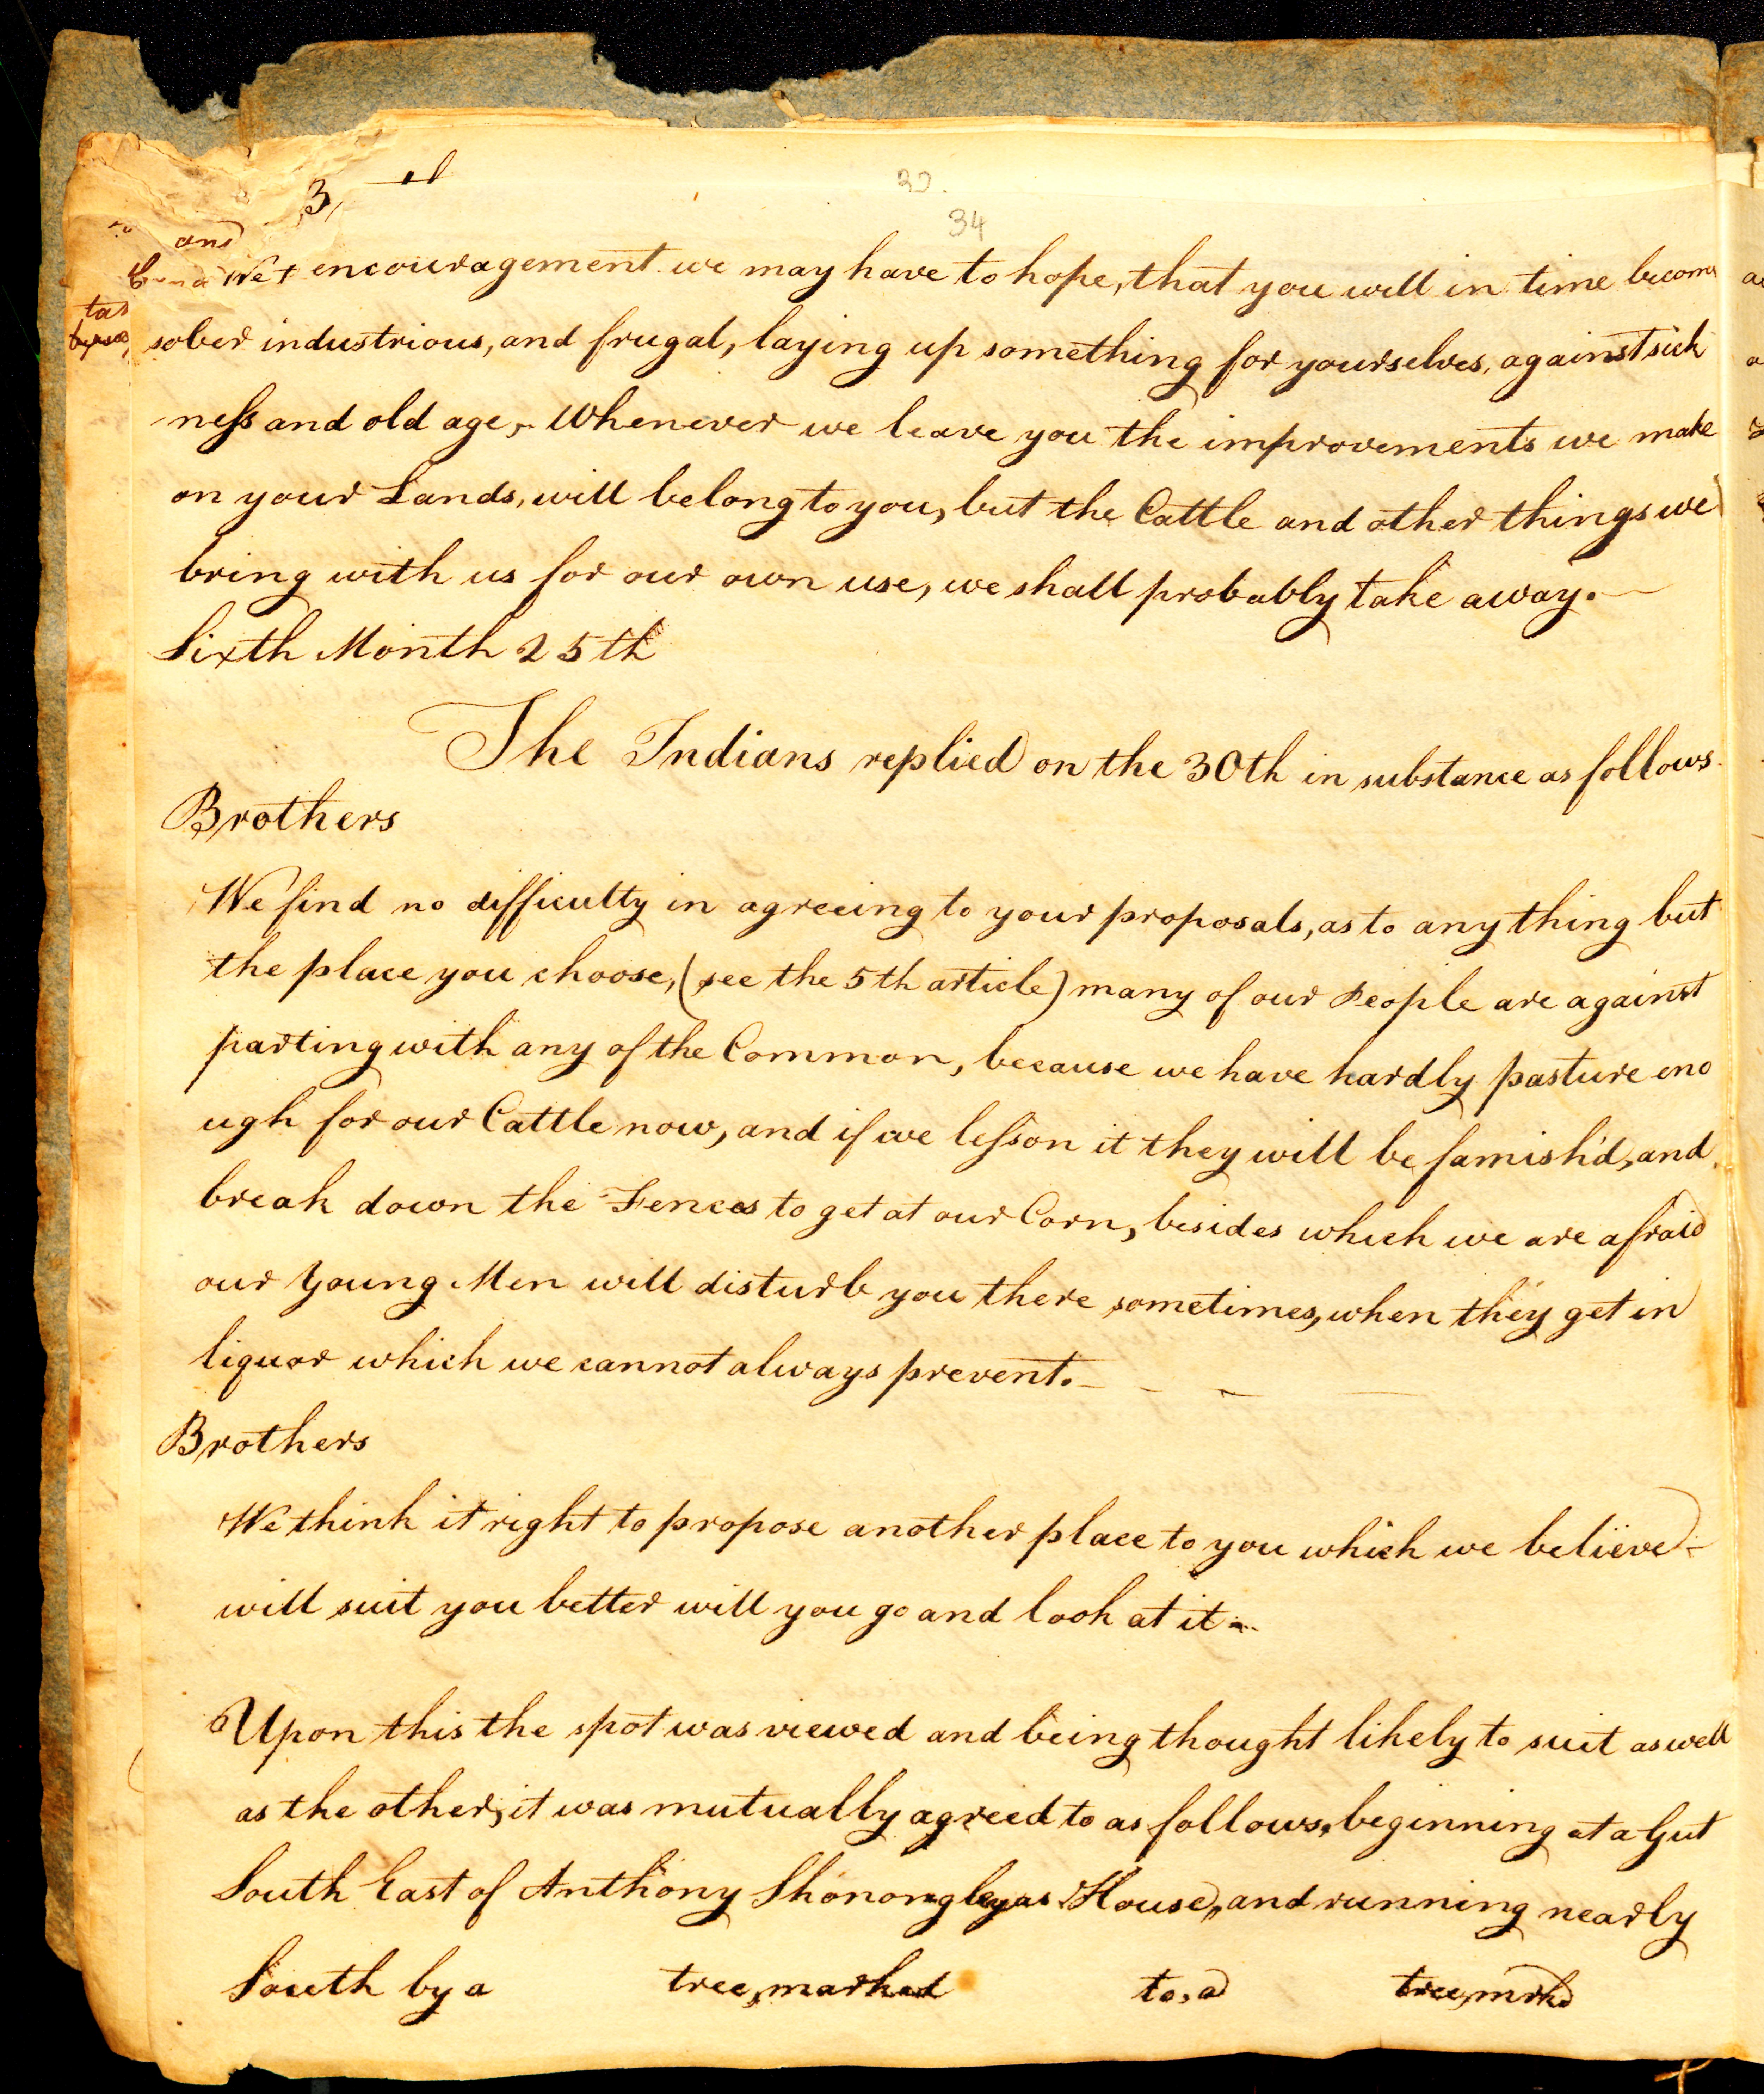 3
32.
34
and
encouragement we may have to hope, that you will in time become
sober industrious, and frugal, laying up something for yourselves, against sick
ness and old age, Whenever we leave you the improvements we make
on your Lands, will belong to you, but the Cattle and other things we
bring with us for our own use, we shall probably take away.
Sixth Month 25th
The Indians replied on the 30th in substance as follows.
Brothers
We find no difficulty in agreeing to your proposals, as to any thing but
the place you choose, (see the 5th article) many of our People are against
parting with any of the Common, because we have hardly pasture eno
ugh for our Cattle now, and if we lesson it they will be famish'd, and
break down the Fences to get at our Corn, besides which we are afraid
our Young Men will disturb you there sometimes, when they get in
liquor which we cannot always prevent.
Brothers
We think it right to propose another place to you which we believe
will suit you better will you go and look at it
Upon this the spot was viewed and being thought likely to suit as well
as the other, it was mutually agreed to as follows, beginning at a Gut
South East of Anthony Shonongleyas House, and running nearly
South by a tree, marked to, a tree, mrkd